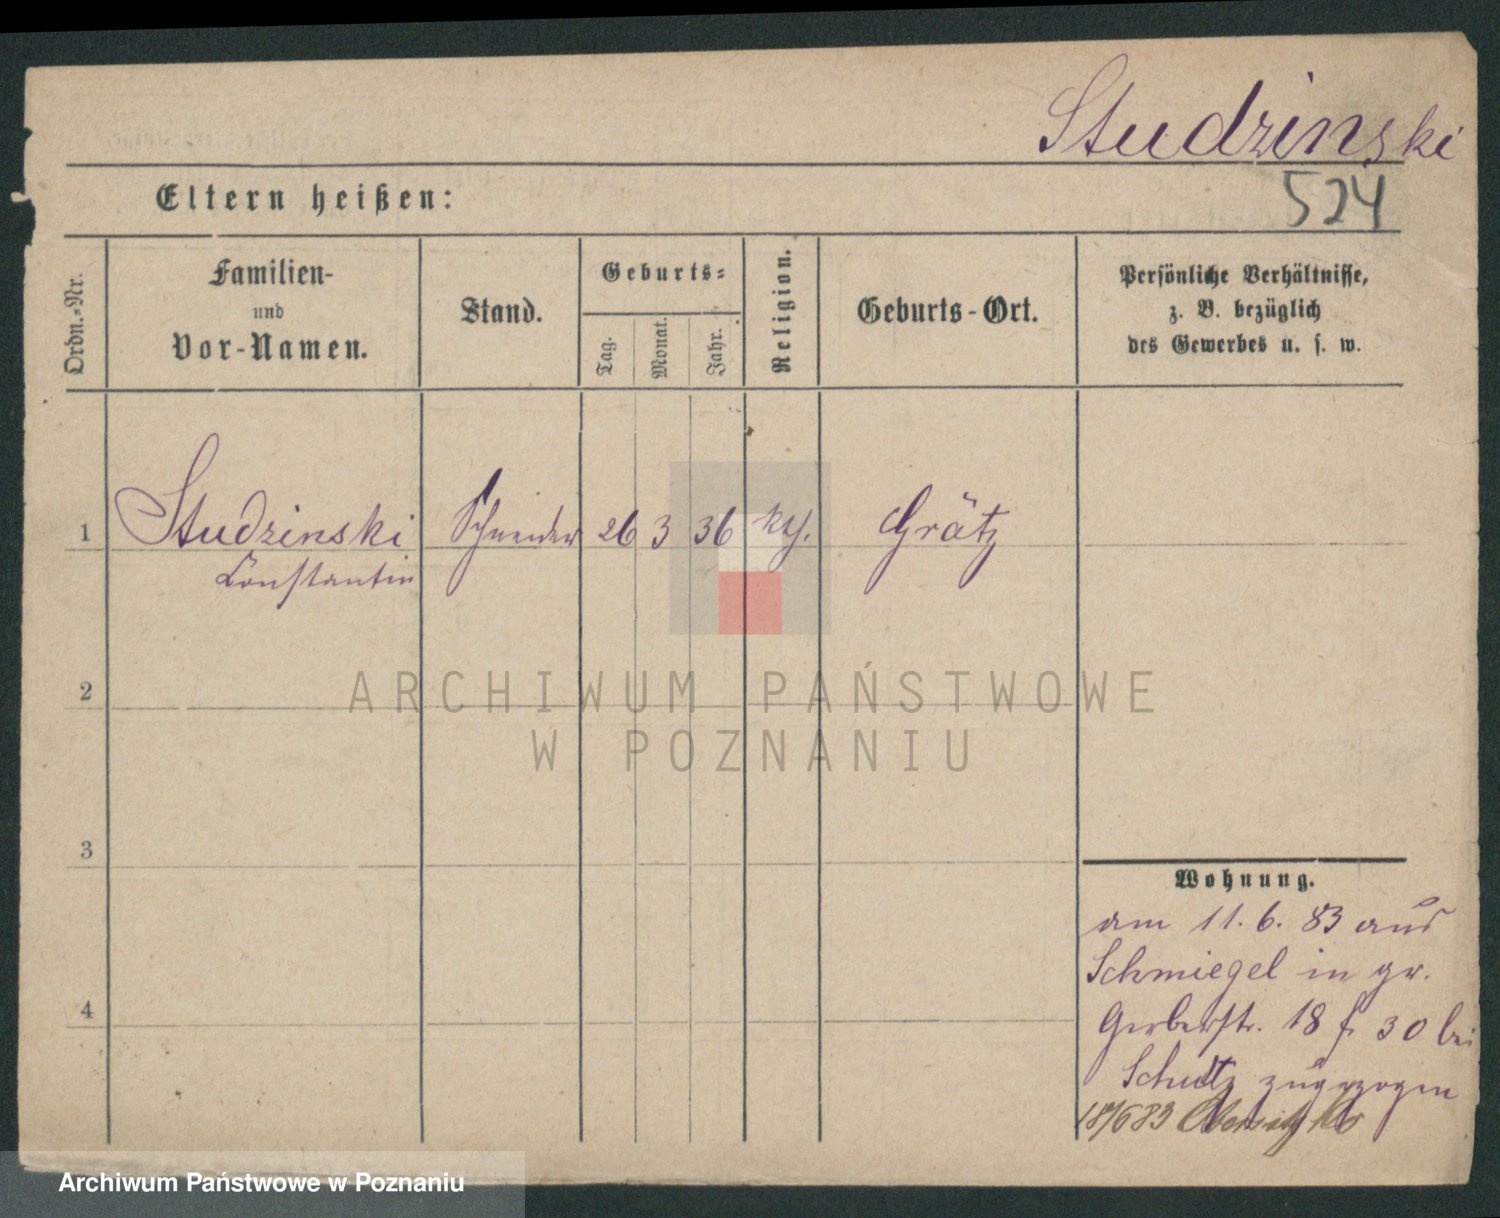 Studzinski
524
Eltern heißen:
Ordn.-Nr.
Familien-
und
Vor-Namen.
Stand.
Geburts-
Tag.
Monat.
Jahr.
Religion.
Geburts-Ort.
Persönliche Verhältnisse,
z. B. bezüglich
des Gewerbes u. s. w.
1 Studzinski Schneider 26 3 36 kth. Grätz
Constantin
2
3
4
Wohnung.
am 11. 6. 83 aus
Schmiegel in gr.
Gerberstr. 18 f. 30 bei
Schultz zugezogen
18/6 83
ARCHIWUM PAŃSTWOWE
W POZNANIU
Archiwum Państwowe w Poznaniu